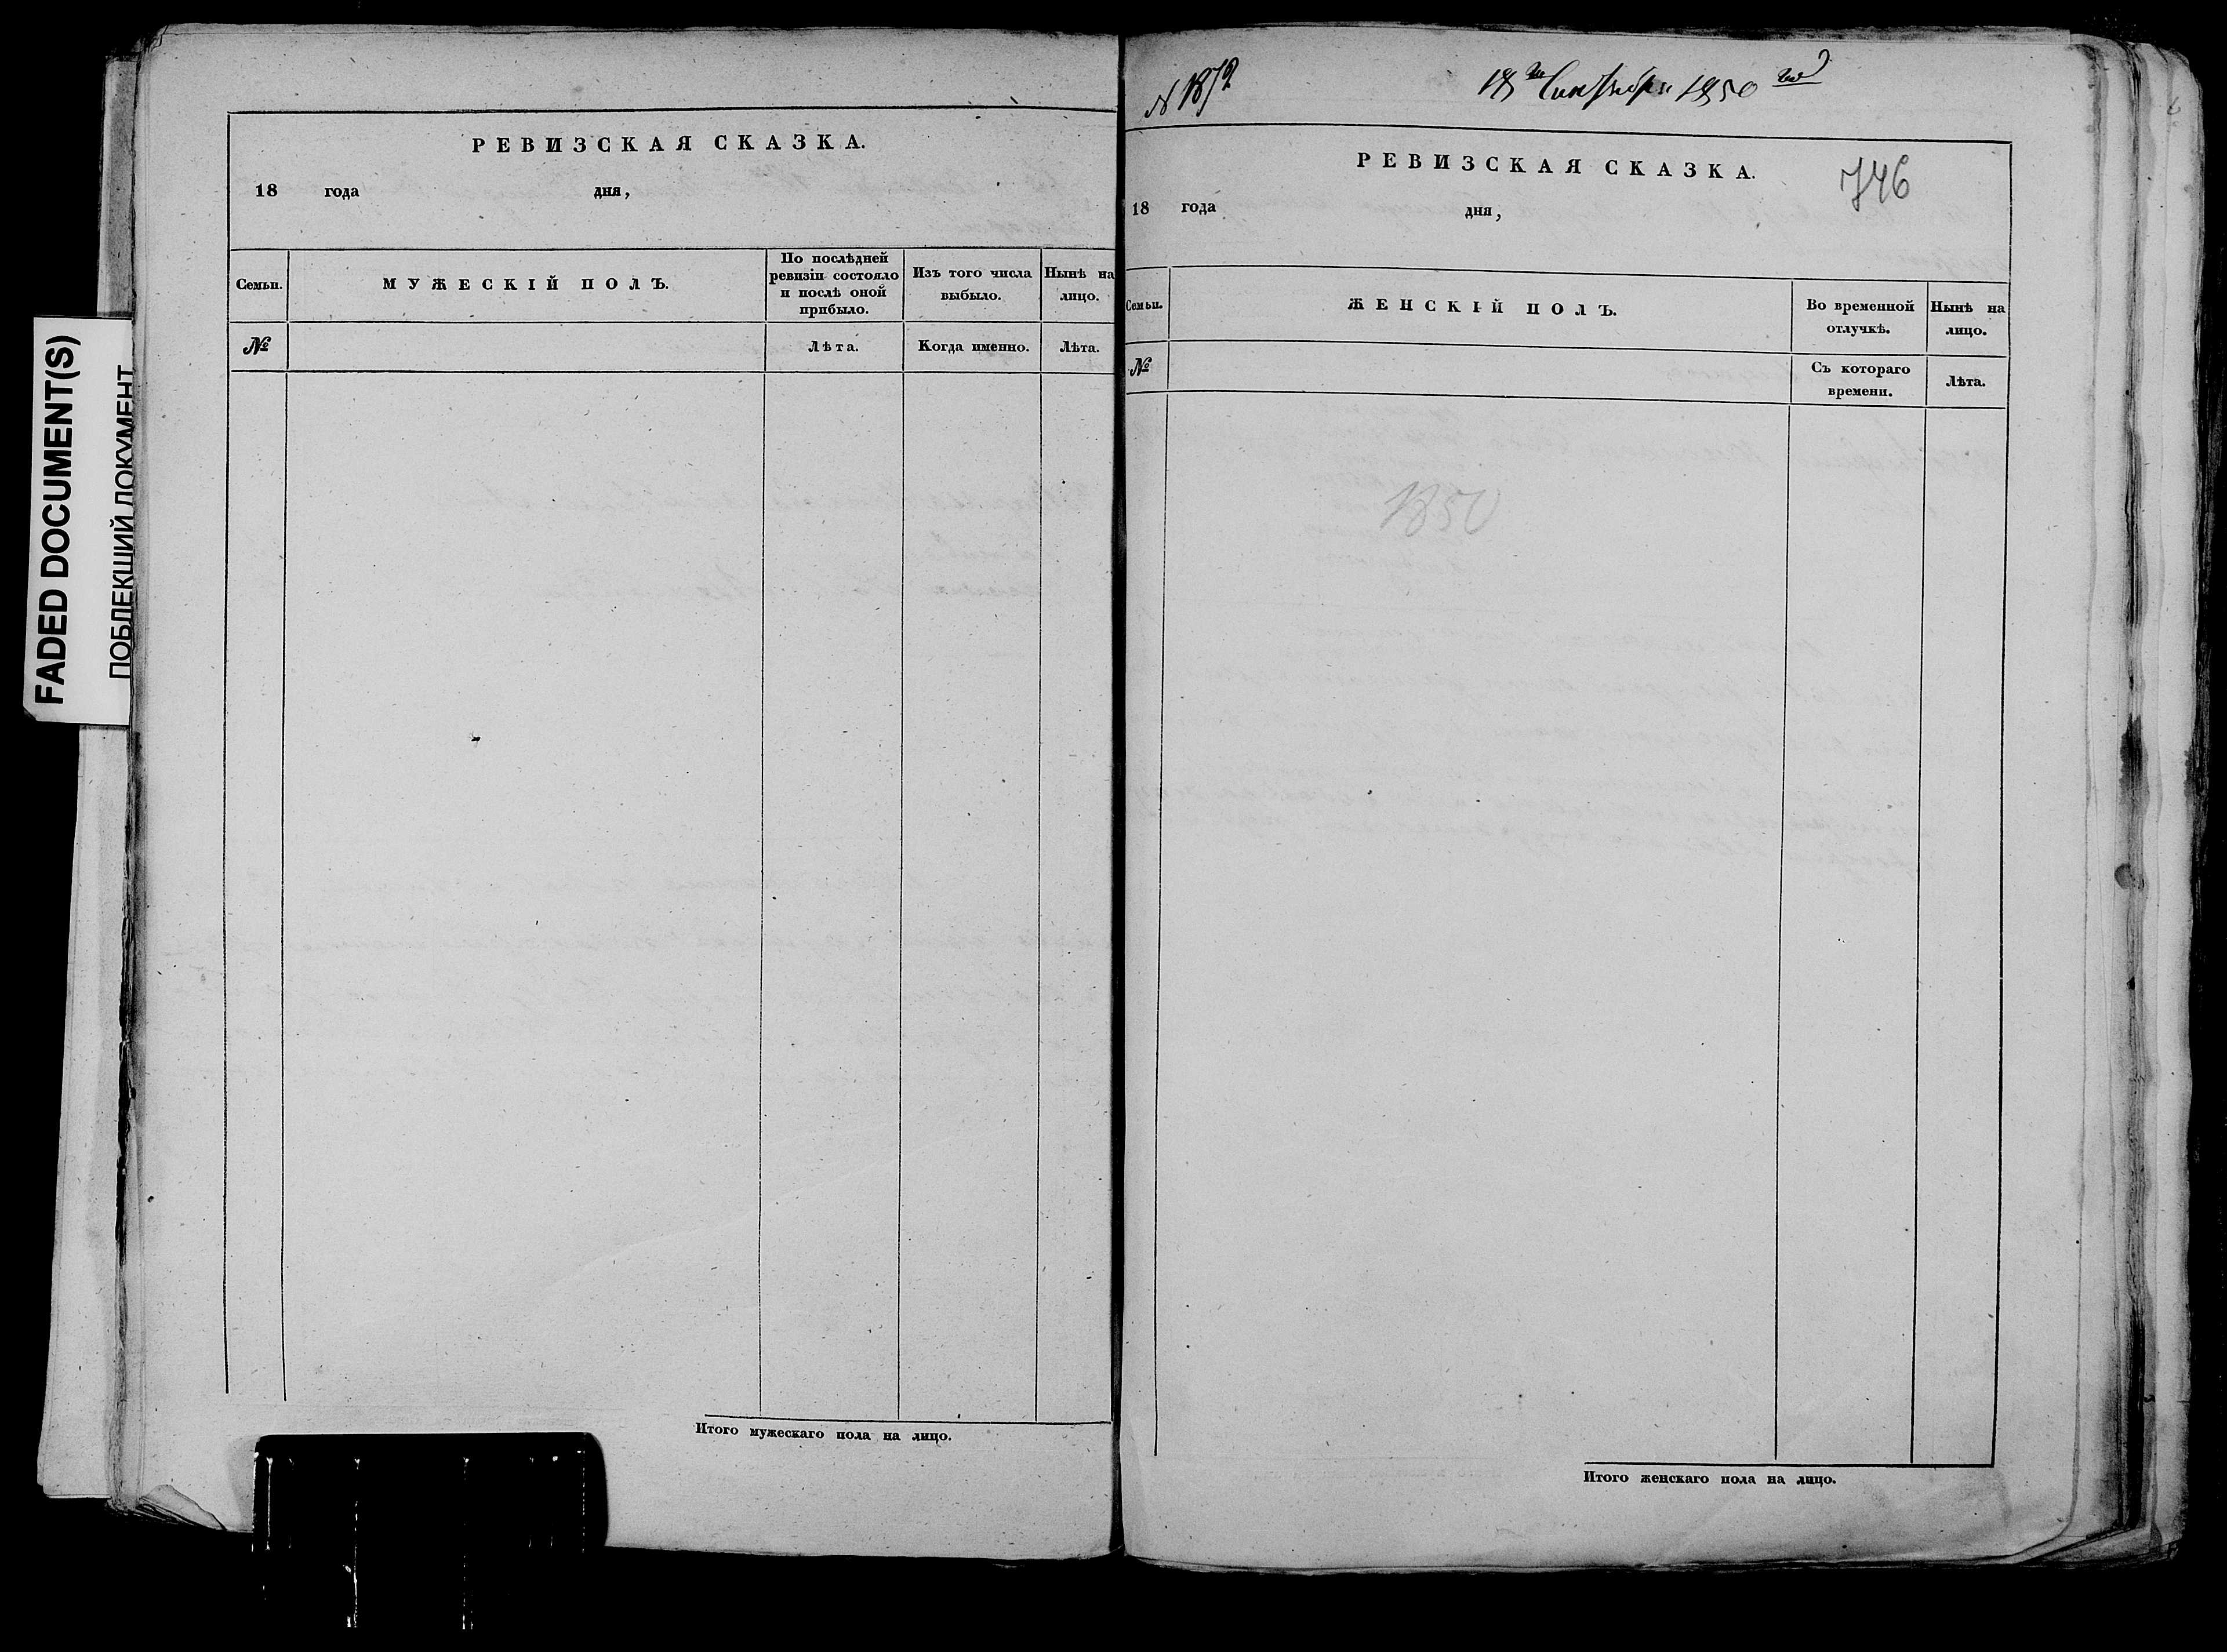 FADED DOCUMENT(S)
ПОБЛЕКШИЙ ДОКУМЕНТ
РЕВИЗСКАЯ СКАЗКА.
18 года дня,
Семьи.
МУЖЕСКІЙ ПОЛЪ.
По послѣдней
ревизіи состояло
и послѣ оной
прибыло.
Изъ того числа
выбыло.
Нынѣ на
лицо.
№
Лѣта.
Когда именно.
Лѣта.
Итого мужескаго пола на лицо.
N 1872
18го Сентября 1850 год
РЕВИЗСКАЯ СКАЗКА.
746
18 года дня,
Семьи.
ЖЕНСКІЙ ПОЛЪ.
Во временной
отлучкѣ.
Нынѣ на
лицо.
№
Съ котораго
времени.
Лѣта.
1850
Итого женскаго пола на лицо.